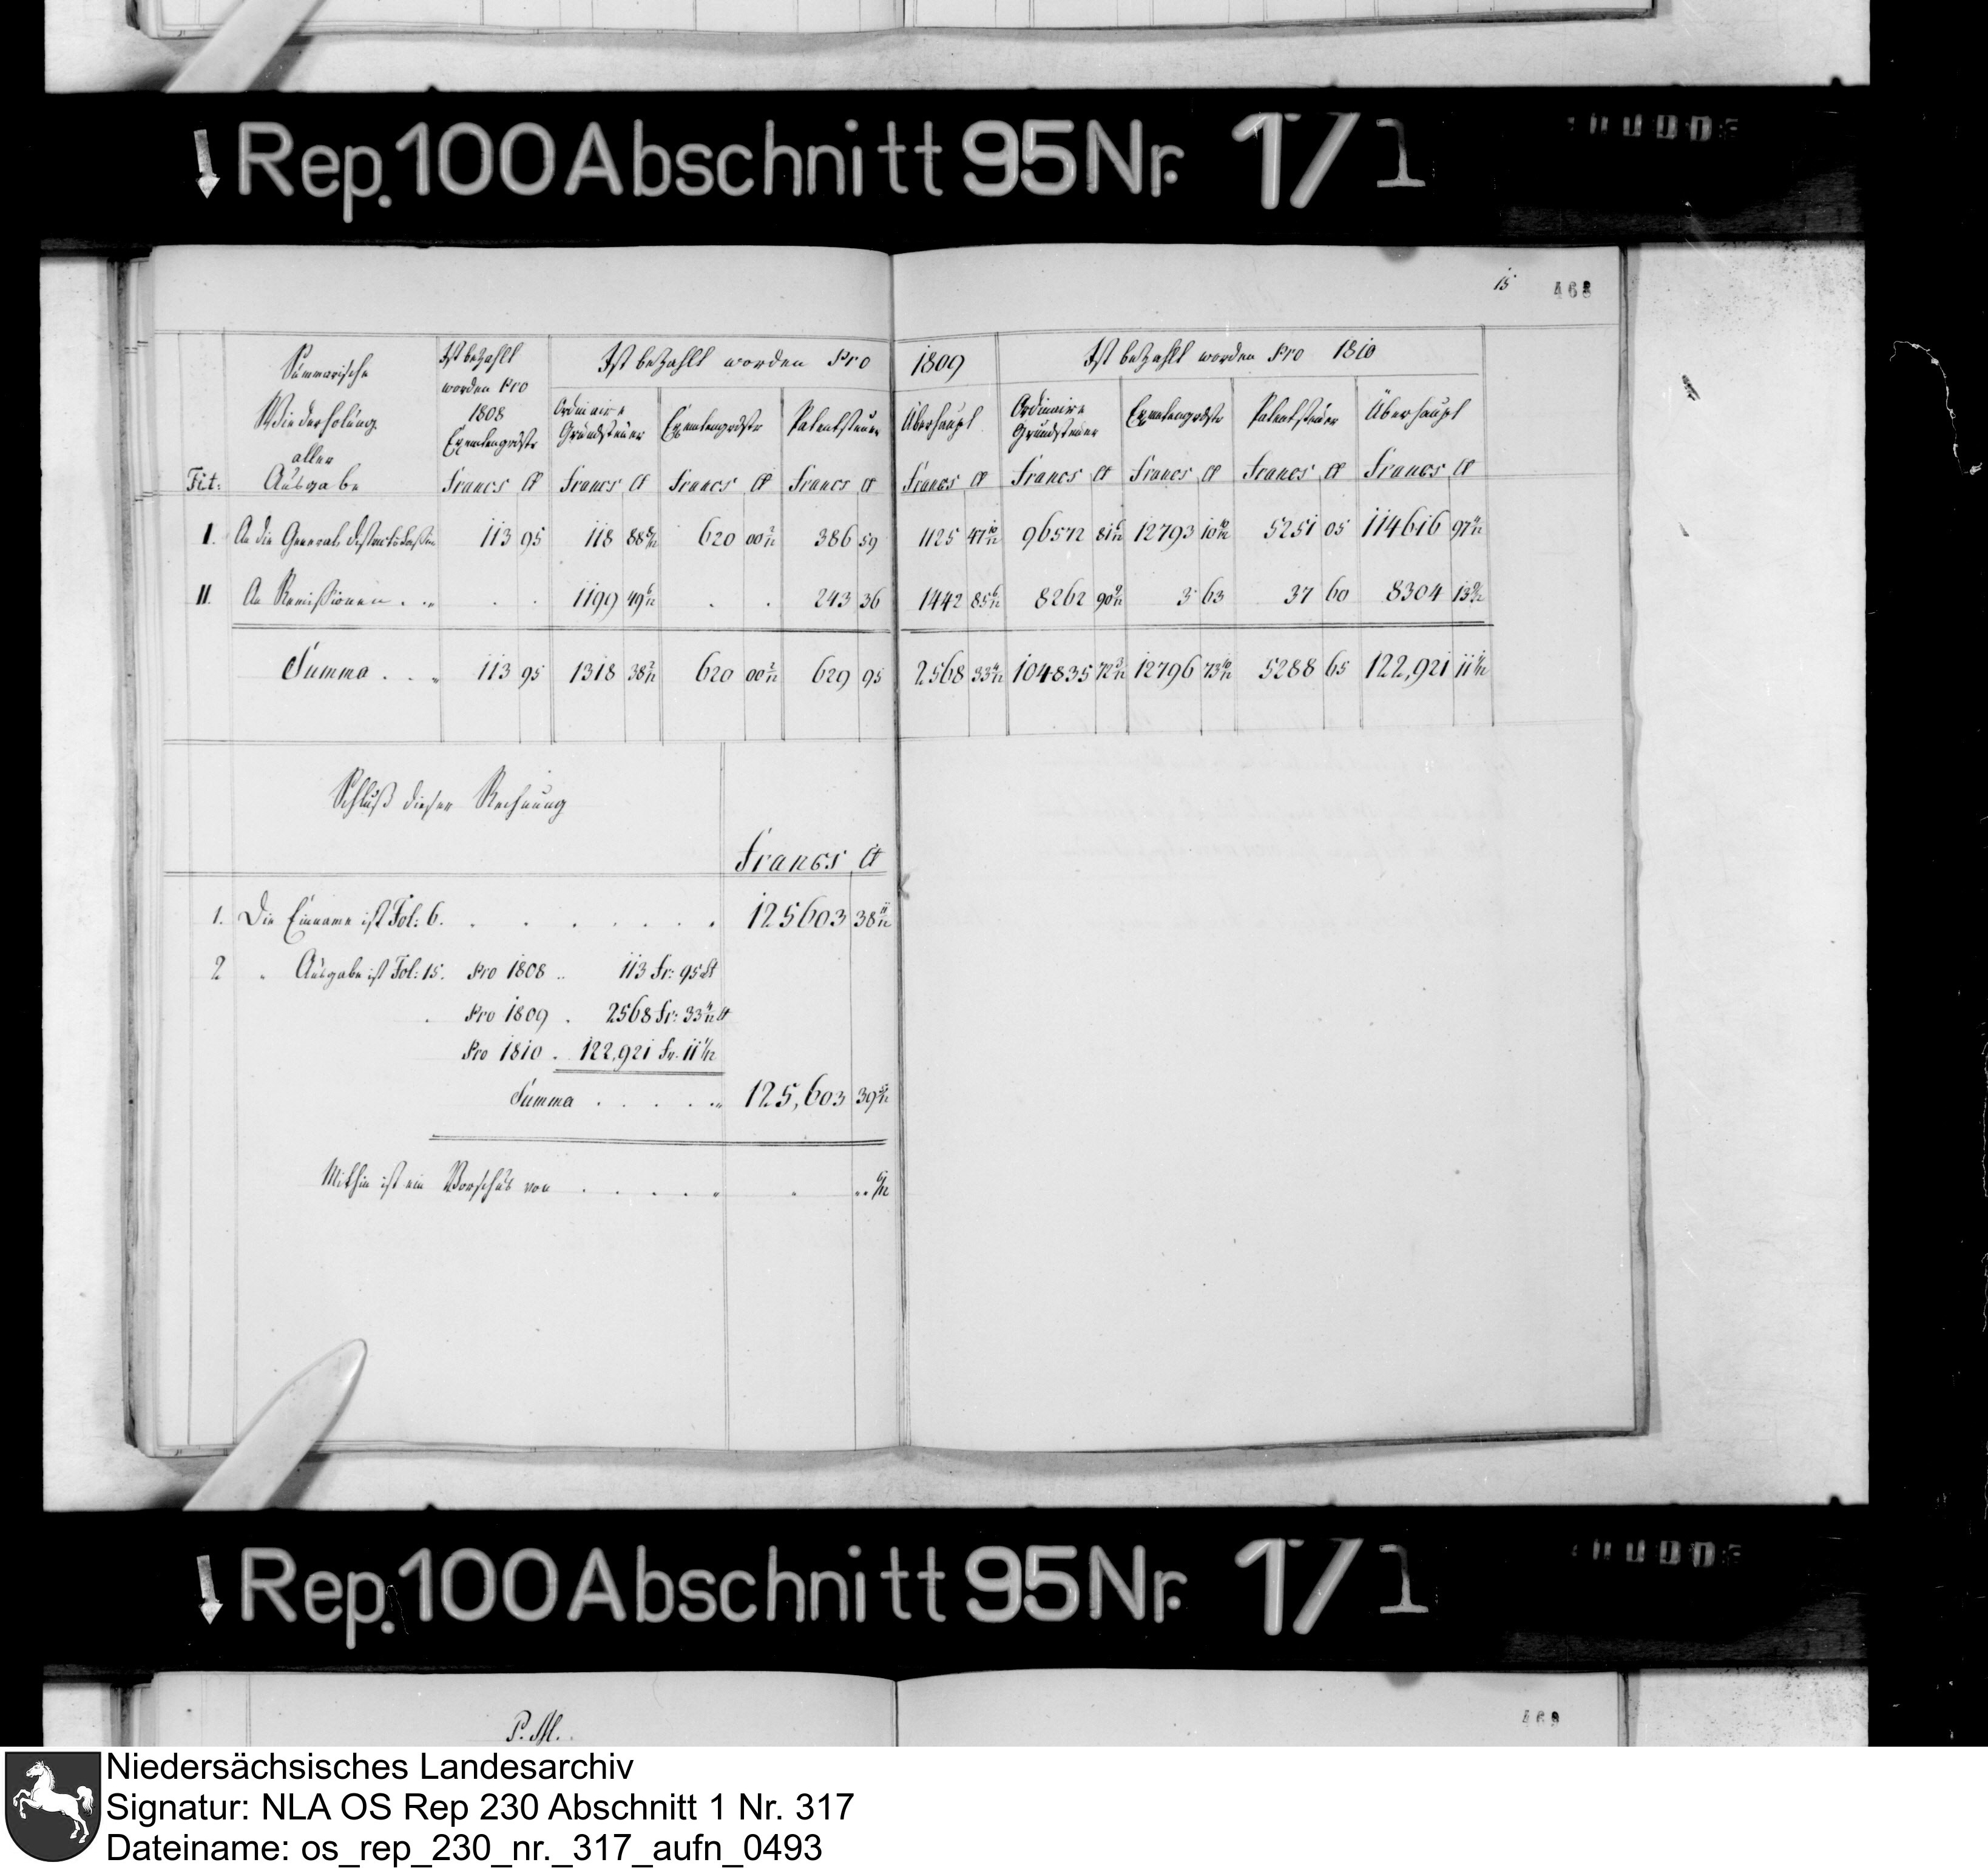 Rep. 100 Abschnitt 95 Nr. 1/1
15 468
Summarische Ist bezahlt Ist bezahlt worden pro 1809 Ist bezahlt worden pro 1810
Wiederholung worden pro
aller 1808 Ordinaire Exemtengrdstr Patentsteuer Überhaupt Ordinaire Exemtengrdstr Patentsteuer Überhaupt
Exemtengrdstr Grundsteuer Grundsteuer
Tit: Ausgabe Francs Ct Francs Ct Francs Ct Francs Ct Francs Ct Francs Ct Francs Ct Francs Ct Francs Ct
I. An die General 113 95 118 88 8/12 620 00 2/12 386 59 1125 47 10/12 96572 81 6/12 12793 10 10/12 5251 05 114616 97 4/12
II. An Remissionen . . „ . . 1199 49 6/12 . . 243 36 1442 85 6/12 8262 90 9/12 3 63 37 60 8304 13 9/12
Summa . . „ 113 95 1318 38 2/12 620 00 2/12 629 95 2568 33 4/12 104835 72 3/12 12796 73 10/12 5288 65 122,921 11 1/12
Schluß dieser Rechnung
Francs Ct
1. Die Einname ist Fol: 6. . . . . . . . 125603 38 11/12
2 „ Ausgabe ist Fol: 15. pro 1808 .. 113 Fr: 95 Ct
„ pro 1809 . 2568 Fr: 33 4/12 Ct
pro 1810 . 122,921 Fr. 11 1/12
Summa . . . . . „ 125,603 39 5/12
Mithin ist ein Vorschus von . . . . . „ „ „ 6/12
Rep. 100 Abschnitt 95 Nr. 1/1
P. M.
469
Niedersächsisches Landesarchiv
Signatur: NLA OS Rep 230 Abschnitt 1 Nr. 317
Dateiname: os_rep_230_nr._317_aufn_0493